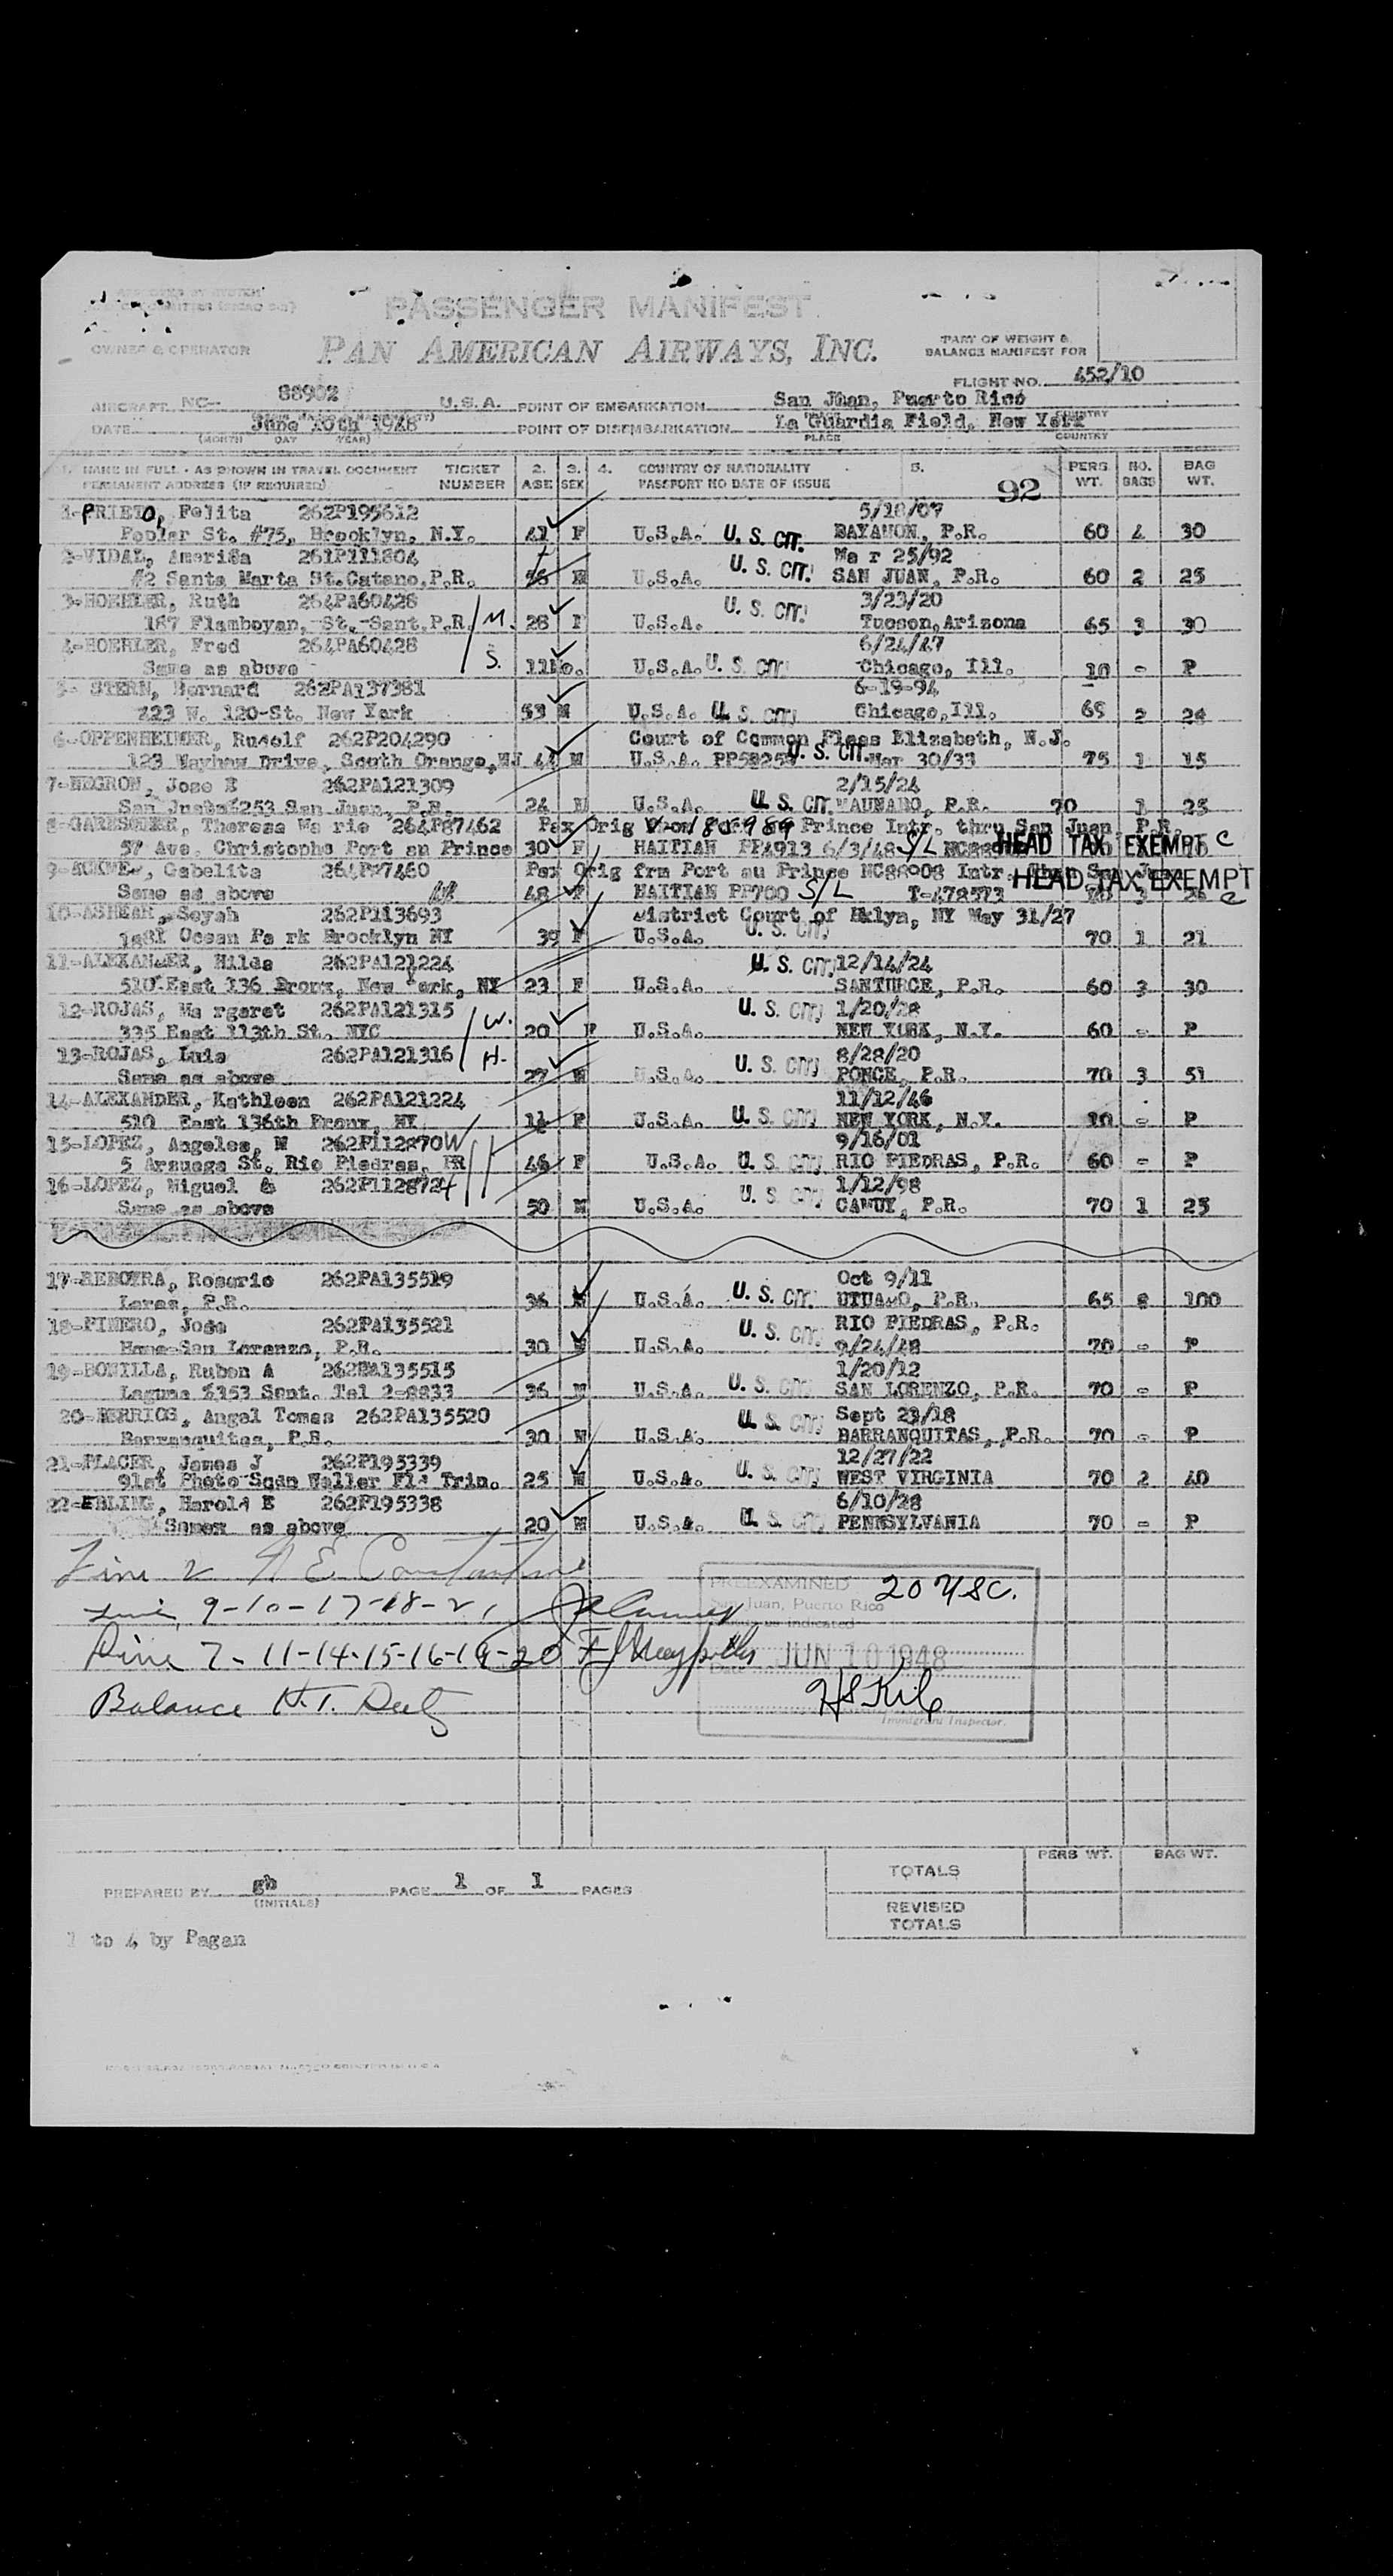 PASSENGER MANIFEST
OWNER & OPERATOR PAN AMERICAN AIRWAYS, INC. PART OF WEIGHT &
BALANCE MANIFEST FOR
FLIGHT NO. 452/10
AIRCRAFT NC- 88902 U.S.A. POINT OF EMBARKATION San Jhan, Puerto Rico
DATE June 10th 1948 POINT OF DISEMBARKATION La Guardia Field, New York
(MONTH DAY YEAR) PLACE COUNTRY
1. NAME IN FULL - AS SHOWN IN TRAVEL DOCUMENT TICKET 2. 3. 4. COUNTRY OF NATIONALITY 5. PERS NO. BAG
PERMANENT ADDRESS (IF REQUIRED) NUMBER AGE SEX PASSPORT NO DATE OF ISSUE 92 WT. BAGS WT.
1-PRIETO, Felita 262P195612 5/18/07
St. #75, Brooklyn, N.Y. 41 F U.S.A. U. S. CIT. BAYAMON, P.R. 60 4 30
2-VIDAL, 261P111804 Ma r 25/92
#2 Santa Marta St.Catano,P.R. U.S.A. U. S. CIT. SAN JUAN, P.R. 60 2 25
3-HOEHLER, Ruth 264PA60428 3/23/20
187 Flamboyan, St.-Sant.P.R. M. 28 F U.S.A. U. S. CIT. Tucson,Arizona 65 3 30
4-HOEHLER, Fred 264PA60428 6/24/47
Same as above S. 11Mo. U.S.A. U. S. CIT. Chicago, Ill. 10 - P
5- STERN, Bernard 262PA137381 6-19-94
W. 120-St. New York 53 M U.S.A. U. S. CIT. Chicago,Ill. 65 2 24
6-OPPENHEIMER, Rudolf 262P204290 Court of Common Pleas Elizabeth, N.J.
123 Drive, South Orange,NJ 44 M U.S.A. U. S. CIT. Mar 30/33 75 1 15
7-NEGRON, Jose E 262PA121309 2/15/24
San Justo #253 San Juan, P.R. 24 M U.S.A. U. S. CIT. MAUNABO, P.R. 70 1 25
8-GARESQUIER, Theresa Ma rie 264P87462 Pax Orig Prince Intr. thru San Juan, P.R.
57 Ave. Christophe Port au Prince 30 F HAITIAN PP4913 6/3/48 S/L HEAD TAX EXEMPT C
Gabelita 264P87460 Pax Orig frm Port au Prince NC88908 Intr.
Same as above 48 F HAITIAN PP700 S/L T-478573 HEAD TAX EXEMPT
10-ASHKAR, Seyah 262P113693 District Court of Bklyn, NY May 31/27
Ocean Pa rk Brooklyn NY 39 F U.S.A. U. S. CIT. 70 1 21
11-ALEXANDER, Hilda 262PA121224 U. S. CIT. 12/14/24
510 East 136 Bronx, New York, NY 23 F U.S.A. SANTURCE, P.R. 60 3 30
12-ROJAS, Ma rgaret 262PA121315 W. U. S. CIT. 1/20/28
335 East 113th St. NYC 20 F U.S.A. NEW YORK, N.Y. 60 - P
13-ROJAS, Luis 262PA121316 H. U. S. CIT. 8/28/20
Same as above 27 M U.S.A. PONCE, P.R. 70 3 51
14-ALEXANDER, Kathleen 262PA121224 11/12/46
510 East 136th Bronx, NY F U.S.A. U. S. CIT. NEW YORK, N.Y. 10 - P
15-LOPEZ, Angeles, M 262P112870 W 9/16/01
5 Arzuaga St. Rio Piedras, PR 46 F U.S.A. U. S. CIT. RIO PIEDRAS, P.R. 60 - P
16-LOPEZ, Miguel A 262P112872 H U. S. CIT. 1/12/98
Same as above 50 M U.S.A. CAMUY, P.R. 70 1 25
17-REBOYRA, Rosario 262PA135519 Oct 9/11
Lares, P.R. 36 M U.S.A. U. S. CIT. UTUADO, P.R. 65 8 100
18-PINERO, Jose 262PA135521 RIO PIEDRAS, P.R.
San Lorenzo, P.R. 30 M U.S.A. U. S. CIT. 9/24/48 70 - P
19-BONILLA, Ruben A 262PA135515 1/20/12
Laguna #353 Sant. Tel 2-8833 36 M U.S.A. U. S. CIT. SAN LORENZO, P.R. 70 - P
20-BERRIOS, Angel Tomas 262PA135520 Sept 23/18
Barranquitas, P.R. 30 M U.S.A. U. S. CIT. BARRANQUITAS, P.R. 70 - P
21-PLACER, James J 262P195339 12/27/22
91st Photo Sqan Waller Fld Trin. 25 M U.S.A. U. S. CIT. WEST VIRGINIA 70 2 40
22-EBLING, Harold E 262P195338 6/10/28
Samex as above 20 M U.S.A. U. S. CIT. PENNSYLVANIA 70 - P
Line 2
PREEXAMINED 20 USC.
San Juan, Puerto Rico
Line 9-10-17-18-21
Line 7-11-14-15-16-19-20
JUN 10 1948
Balance H.T.
Immigrant Inspector.
PERS WT. BAG WT.
TOTALS
PREPARED BY gb PAGE 1 OF 1 PAGES
(INITIALS)
REVISED
TOTALS
1 to 4 by Pagan